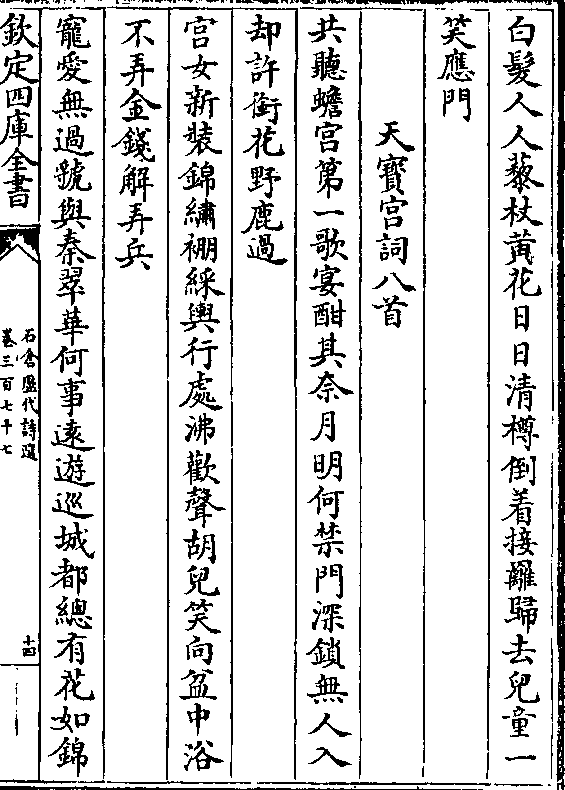 白髮人人藜杖黃花日日清樽倒着接䍦歸去兒童一
笑應門
天寳宫詞八首
共聽蟾宫第一歌宴酣其奈月明何禁門深鎖無人入
却許銜花野鹿過
宫女新裝錦繡棚綵輿行處沸歡聲胡兒笑向盆中浴
不弄金錢解弄兵
寵愛無過虢與秦翠華何事遠遊巡城都總有花如錦
欽定四庫全書
石倉歴代詩選
卷三百七十七
十四